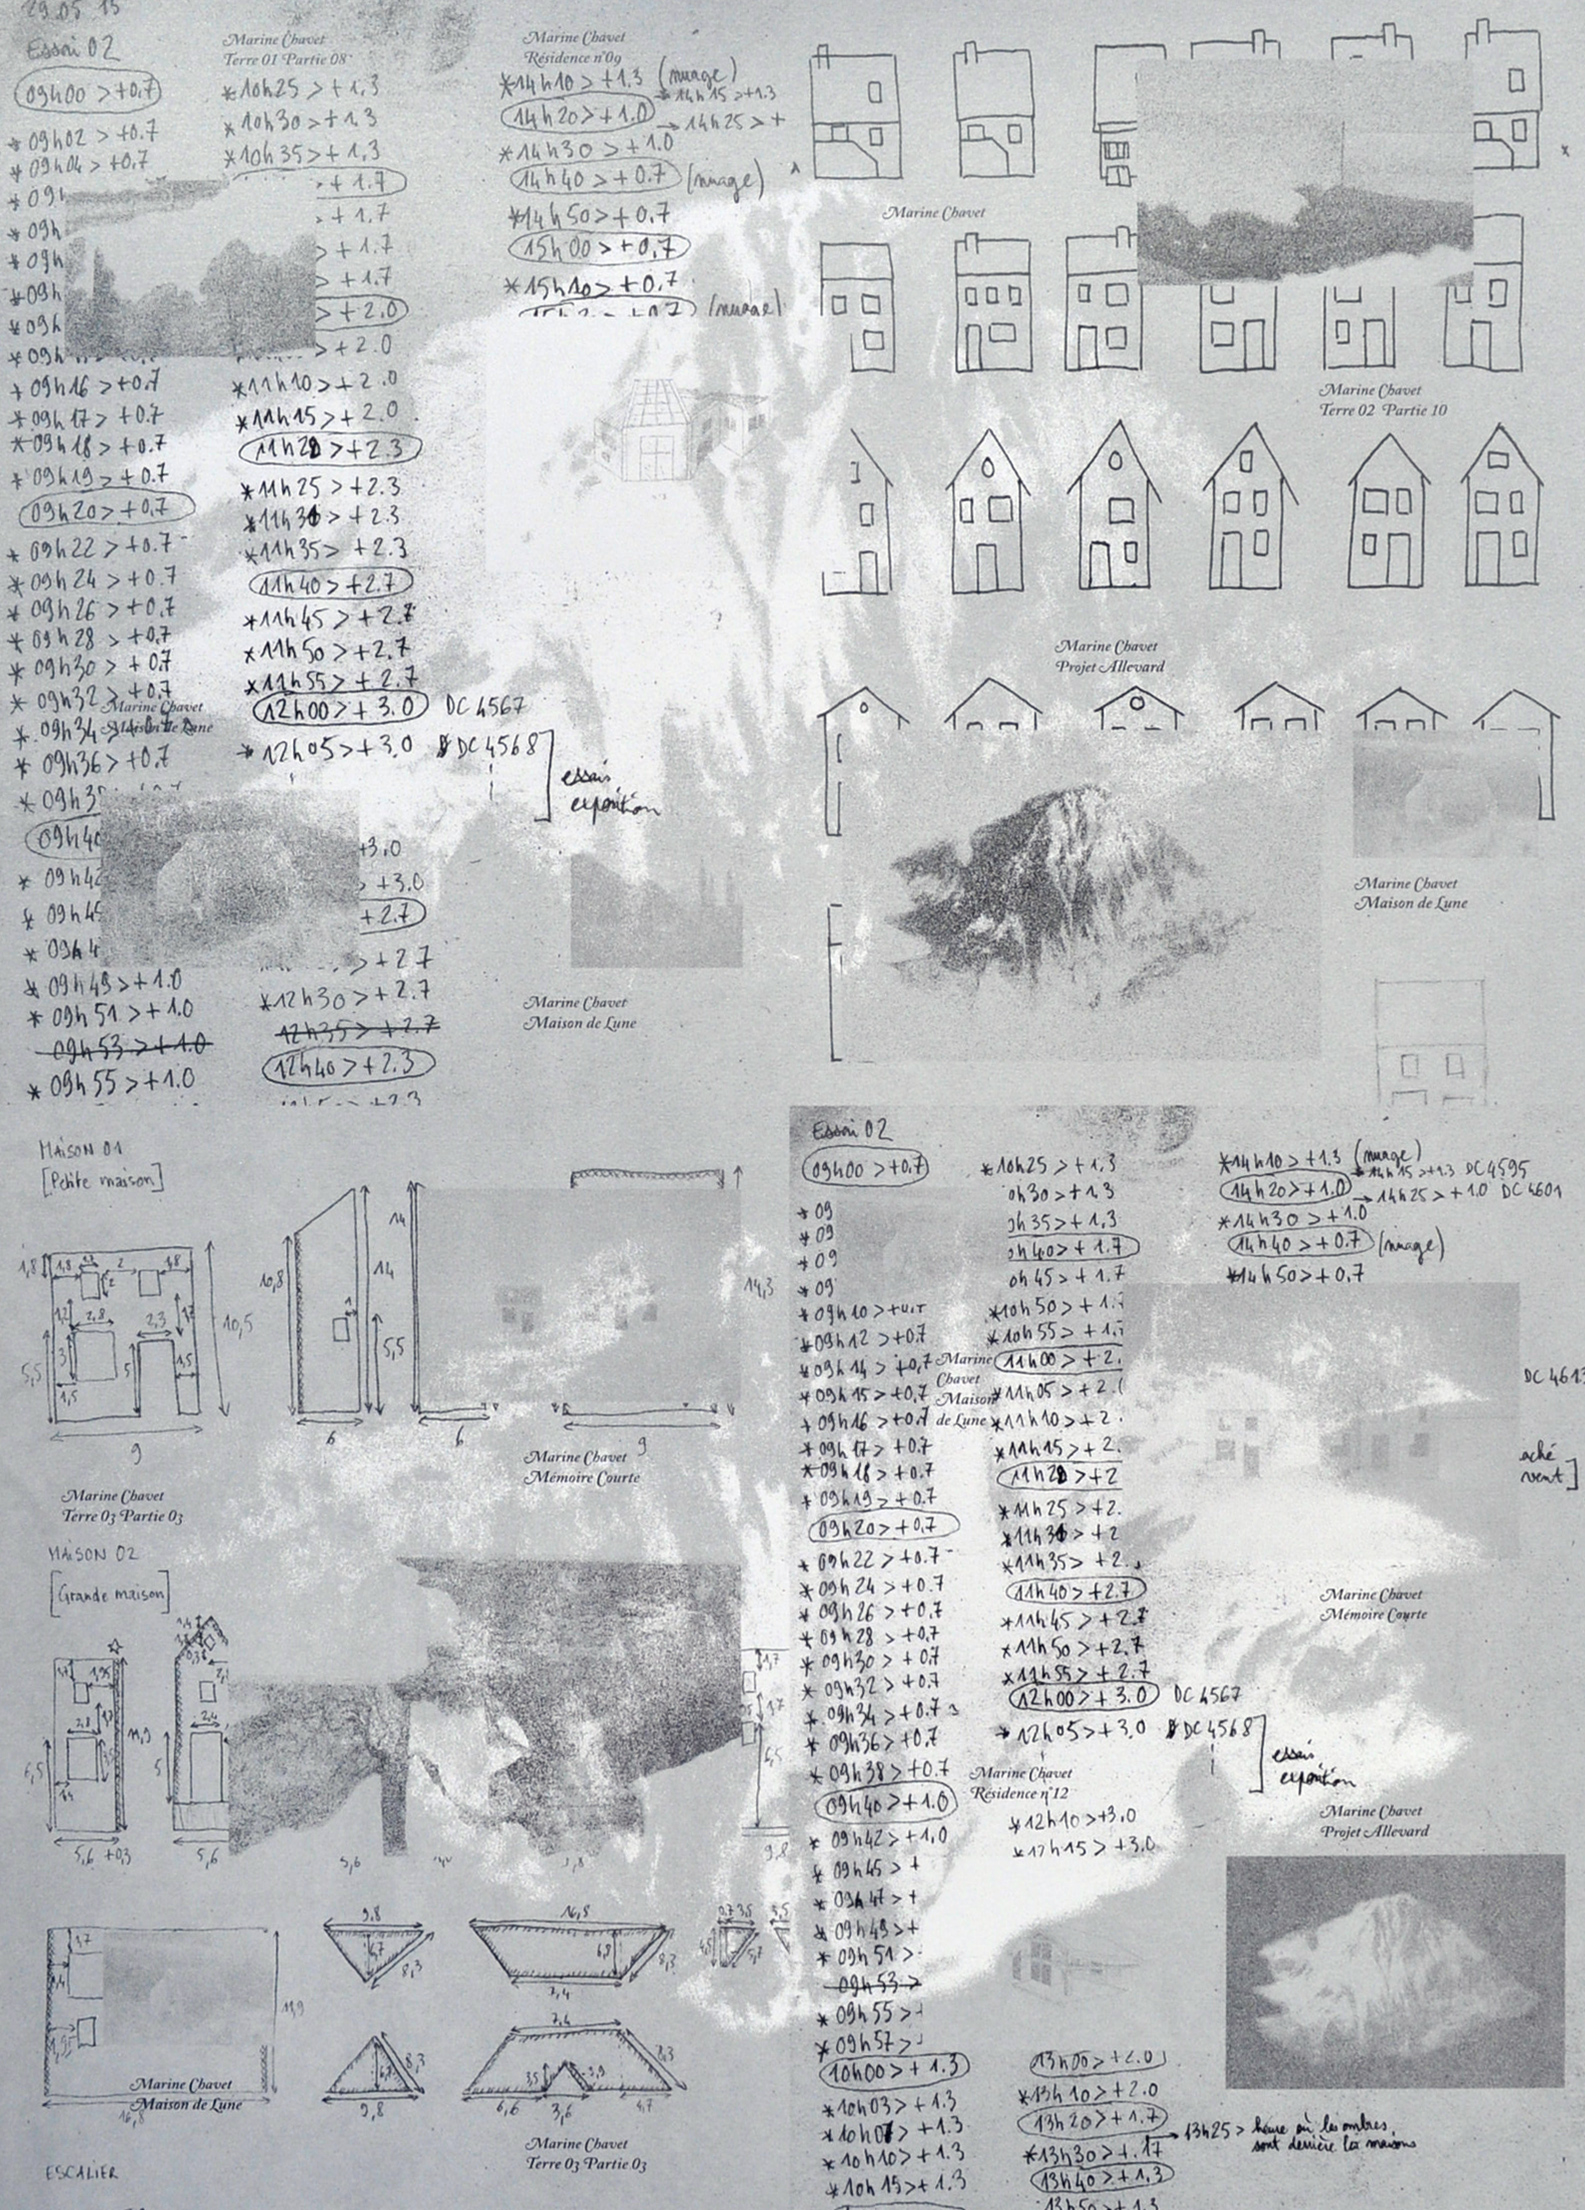 29.05 15
Essai 02
09h00 > +0.7
* 09h02 > +0.7
* 09h04 > +0.7
* 09h16 > +0.7
* 09h17 > +0.7
* 09h18 > +0.7
* 09h19 > +0.7
09h20 > +0.7
* 09h22 > +0.7
* 09h24 > +0.7
* 09h26 > +0.7
* 09h28 > +0.7
* 09h30 > +0.7
* 09h32 > +0.7
* 09h34 > +0.7
* 09h36 > +0.7
* 09h49 > +1.0
* 09h51 > +1.0
09h53 > +1.0
* 09h55 > +1.0
Marine Chavet
Maison de Lune
Marine Chavet
Terre 01 Partie 08
* 10h25 > +1,3
* 10h30 > +1,3
* 10h35 > +1,3
+1.7
+1.7
> +1.7
> +1.7
> +2.0
> +2.0
* 11h10 > +2.0
* 11h15 > +2.0
11h20 > +2.3
* 11h25 > +2.3
* 11h30 > +2.3
* 11h35 > +2.3
11h40 > +2.7
* 11h45 > +2.7
* 11h50 > +2.7
* 11h55 > +2.7
12h00 > +3.0 DC 4567
* 12h05 > +3.0 DC 4568
essais
exposition
+3.0
> +3.0
+2.7
> +2.7
* 12h30 > +2.7
12h35 > +2.7
12h40 > +2.3
Marine Chavet
Résidence n°09
* 14h10 > +1.3 (nuage)
14h15 > +1.3
14h20 > +1.0
→ 14h25 > +
* 14h30 > +1.0
14h40 > +0.7 (nuage)
* 14h50 > +0.7
15h00 > +0,7
* 15h10 > +0.7
(nuage)
Marine Chavet
Maison de Lune
Marine Chavet
Marine Chavet
Terre 02 Partie 10
Marine Chavet
Projet Allevard
Marine Chavet
Maison de Lune
MAISON 01
[Petite maison]
1,8
1,8
2
1,8
1,2
2,8
2,3
1,7
3
5
1,5
1,5
5,5
10,5
9
10,8
14
5,5
6
14
6
14,3
9
Marine Chavet
Mémoire Courte
Marine Chavet
Terre 03 Partie 03
MAISON 02
[Grande maison]
2,8
11,9
6,5
5,6 +0,3
2,4
5
5,6
1,7
9,8
1,7
11,9
16,8
9,8
6,7
8,3
16,8
6,8
8,3
7,4
9,8
6,7
8,3
7,4
3,5
3,9
8,3
6,6
3,6
4,7
Marine Chavet
Maison de Lune
Marine Chavet
Terre 03 Partie 03
ESCALIER
Essai 02
09h00 > +0.7
* 09
* 09
* 09
* 09
* 09h10 >
* 09h12 > +0.7
* 09h14 > +0,7
* 09h15 > +0,7
* 09h16 > +0.7
* 09h17 > +0.7
* 09h18 > +0.7
* 09h19 > +0.7
09h20 > +0,7
* 09h22 > +0.7
* 09h24 > +0.7
* 09h26 > +0.7
* 09h28 > +0.7
* 09h30 > +0.7
* 09h32 > +0.7
* 09h34 > +0.7
* 09h36 > +0.7
* 09h38 > +0.7
09h40 > +1.0
* 09h42 > +1,0
* 09h45 > +
* 09h47 > +
* 09h49 > +
* 09h51 >
09h53 >
* 09h55 >
* 09h57 >
10h00 > +1.3
* 10h03 > +1.3
* 10h07 > +1.3
* 10h10 > +1.3
* 10h15 > +1.3
Marine
Chavet
Maison
de Lune
* 10h25 > +1,3
0h30 > +1,3
0h35 > +1,3
0h40 > +1.7
0h45 > +1.7
* 10h50 > +1.
* 10h55 > +1.
11h00 > +2.
* 11h05 > +2.
* 11h10 > +2.
* 11h15 > +2.
11h20 > +2
* 11h25 > +2.
* 11h30 > +2
* 11h35 > +2.
11h40 > +2.7
* 11h45 > +2.7
* 11h50 > +2.7
* 11h55 > +2.7
12h00 > +3.0 DC 4567
* 12h05 > +3.0 DC 4568
essais
exposition
Marine Chavet
Résidence n°12
* 12h10 > +3.0
* 12h15 > +3.0
13h00 > +2.0
* 13h10 > +2.0
13h20 > +1.7
→ 13h25 > heure où les ombres
sont derrière les maisons
* 13h30 > +1.7
13h40 > +1,3
13h50 > +1.3
* 14h10 > +1.3 (nuage)
14h15 > +1.3 DC 4595
14h20 > +1.0
→ 14h25 > +1.0 DC 4601
* 14h30 > +1.0
14h40 > +0.7 (nuage)
* 14h50 > +0.7
DC 4613
aché
vent]
Marine Chavet
Mémoire Courte
Marine Chavet
Projet Allevard